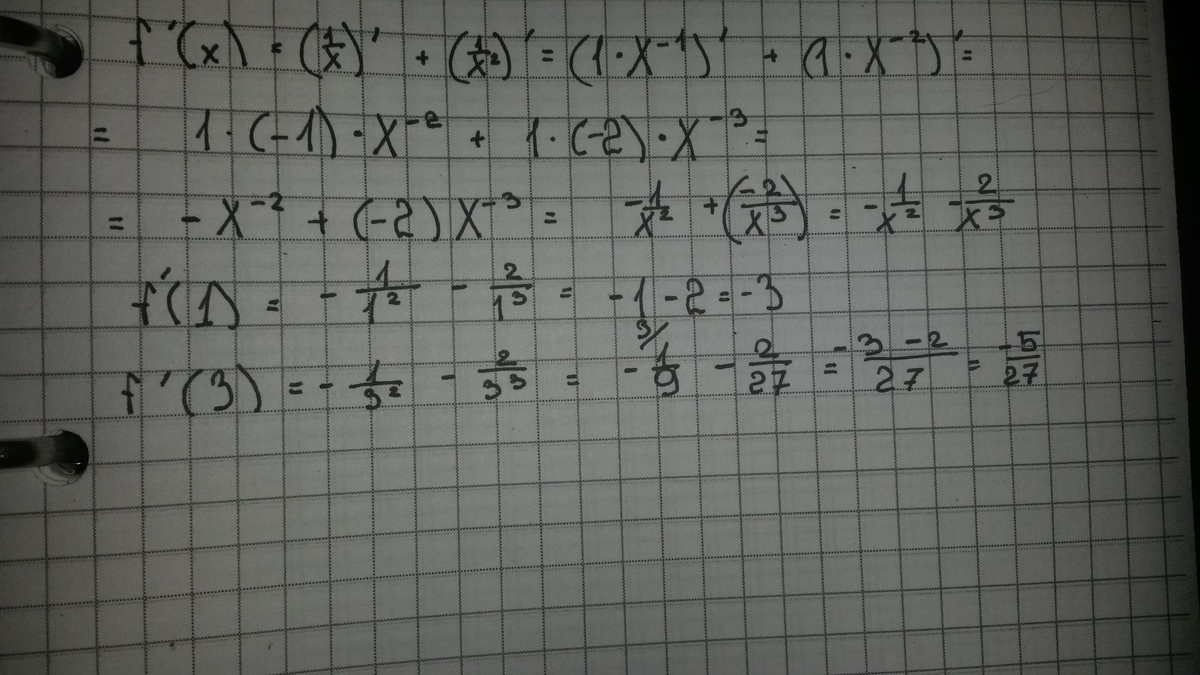 f'(x) = (1/x)' + (1/x²)' = (1·x⁻¹)' + (1·x⁻²)' =
= 1·(-1)·x⁻² + 1·(-2)·x⁻³ =
= -x⁻² + (-2)x⁻³ = -1/x² + (-2/x³) = -1/x² - 2/x³
f'(1) = -1/1² - 2/1³ = -1 - 2 = -3
f'(3) = -1/3² - 2/3³ = - ³⁄1/9 - 2/27 = (-3 - 2)/27 = -5/27